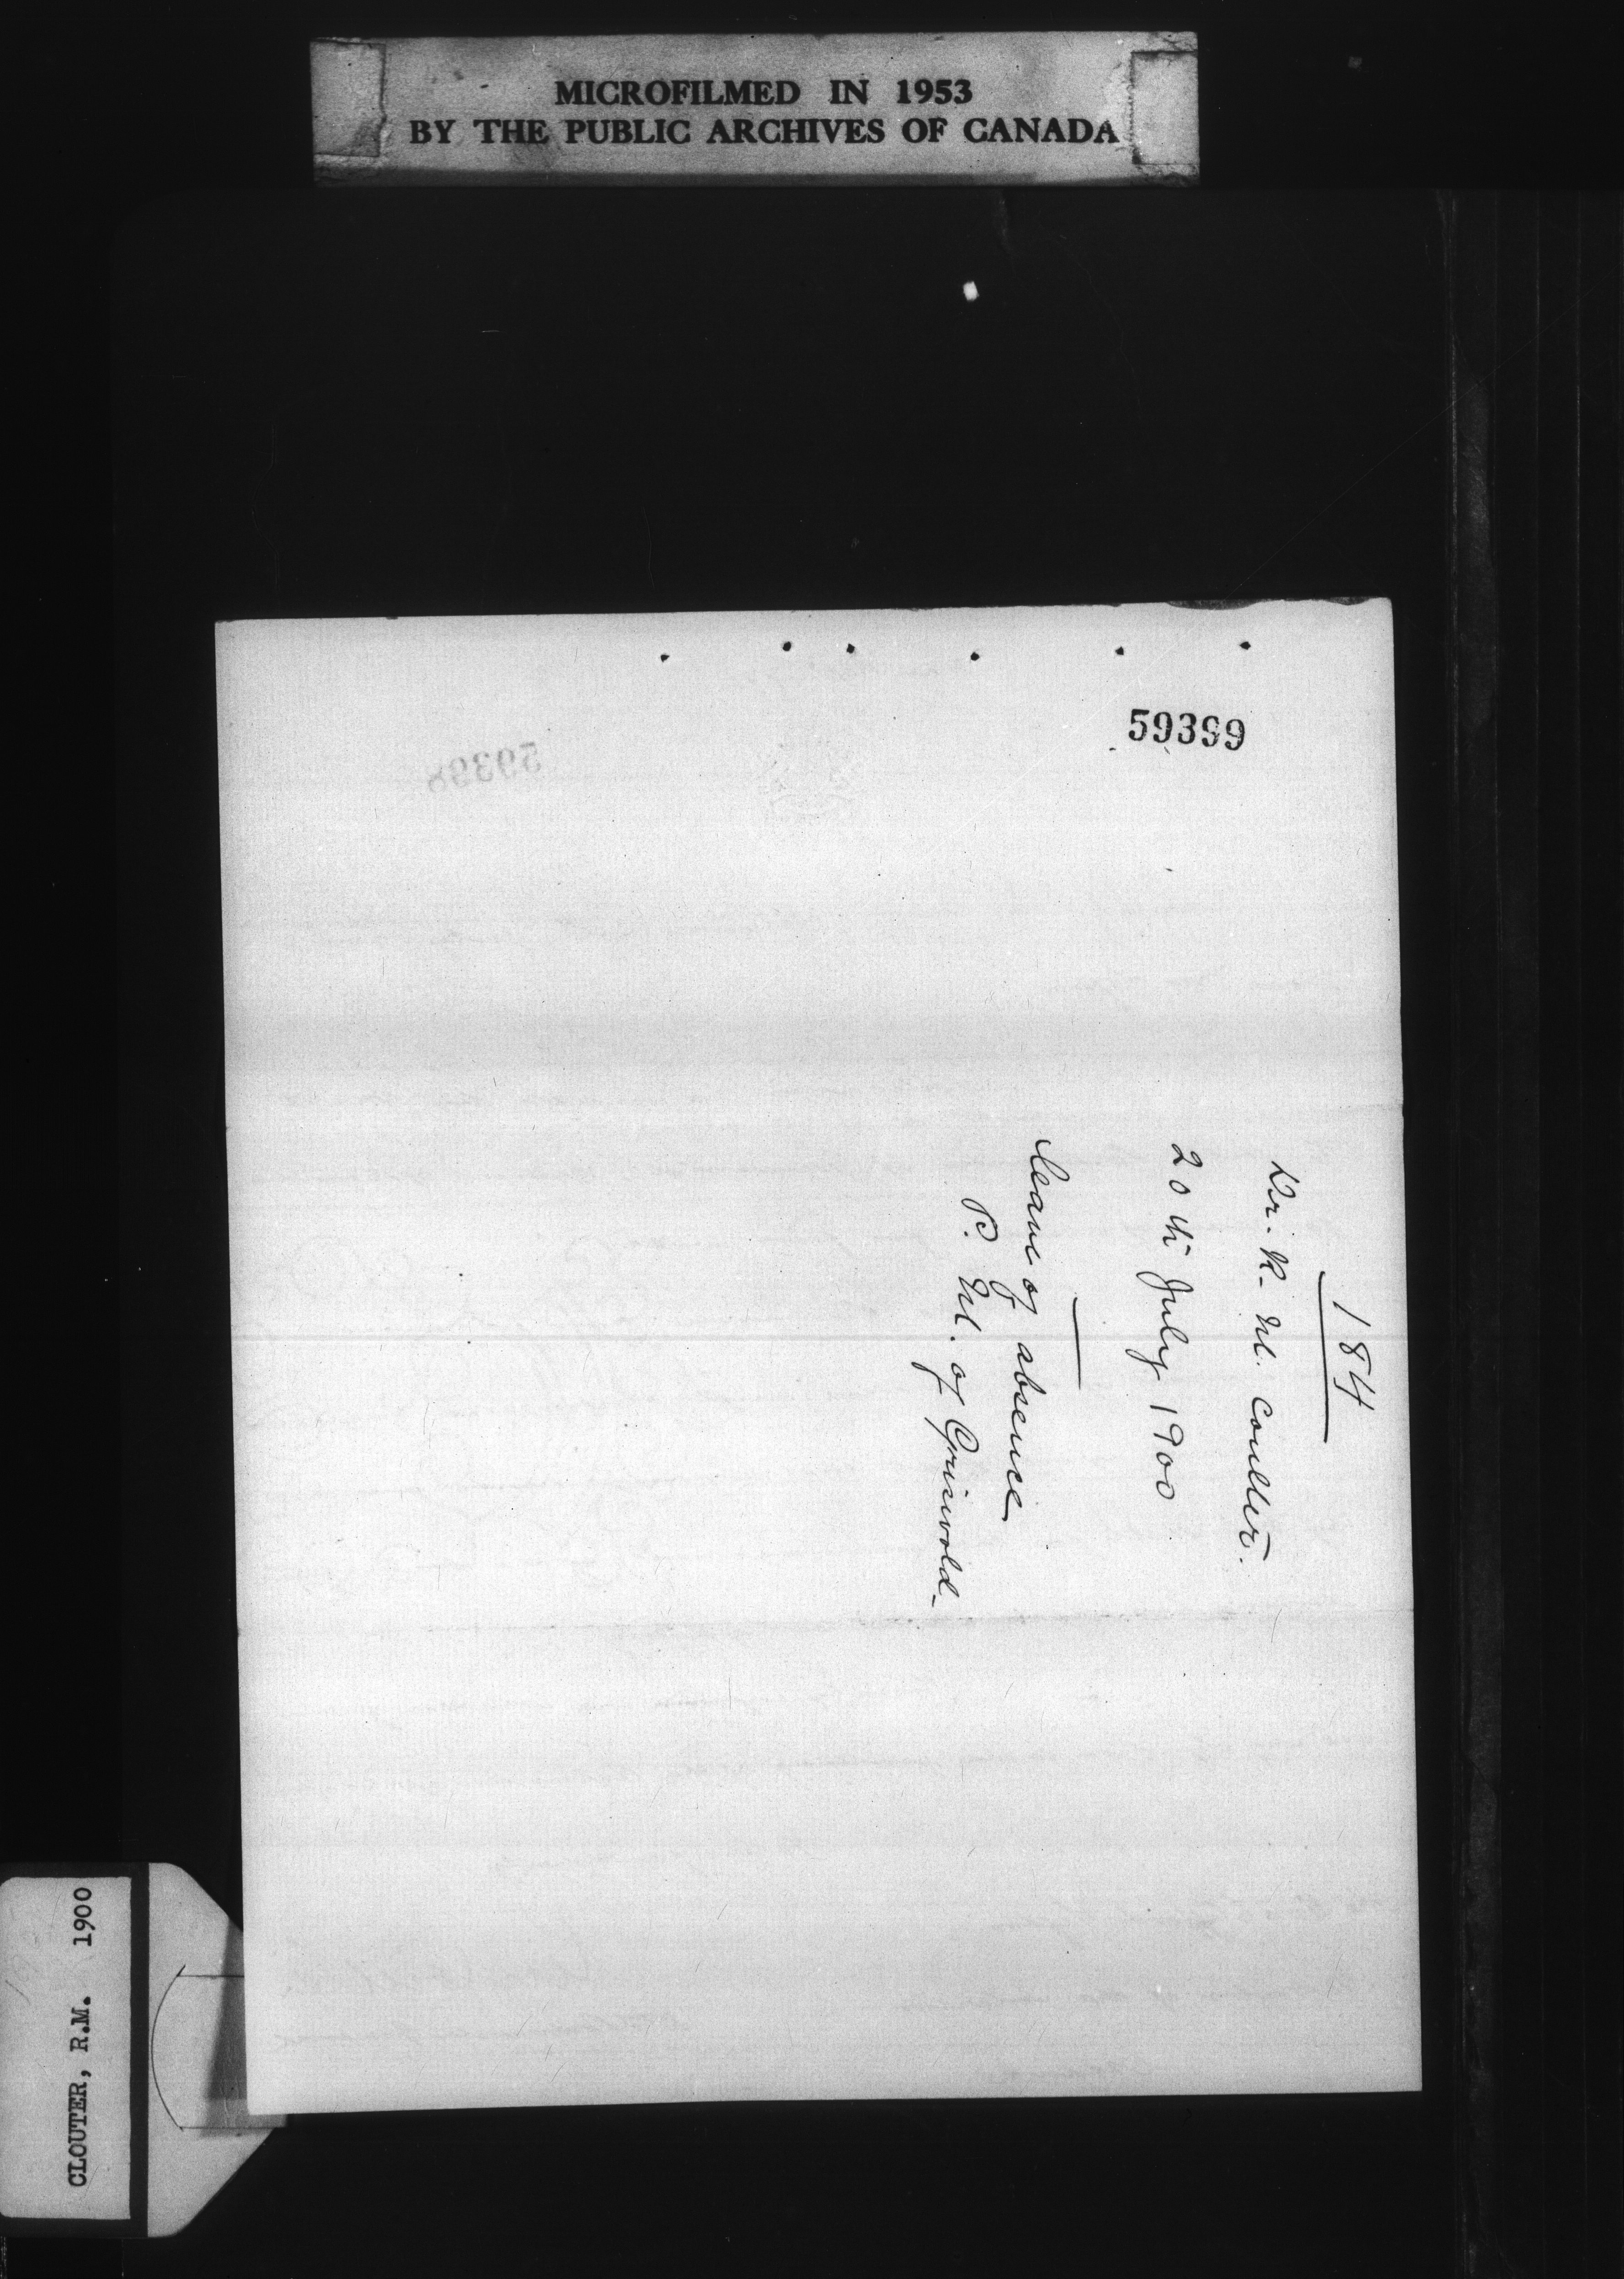 MICROFILMED IN 1953
BY THE PUBLIC ARCHIVES OF CANADA
59399
59398
184
Dr. R. M. Coulter.
20th July 1900
Leave of absence
P. M. of Griswold
CLOUTER, R.M. 1900